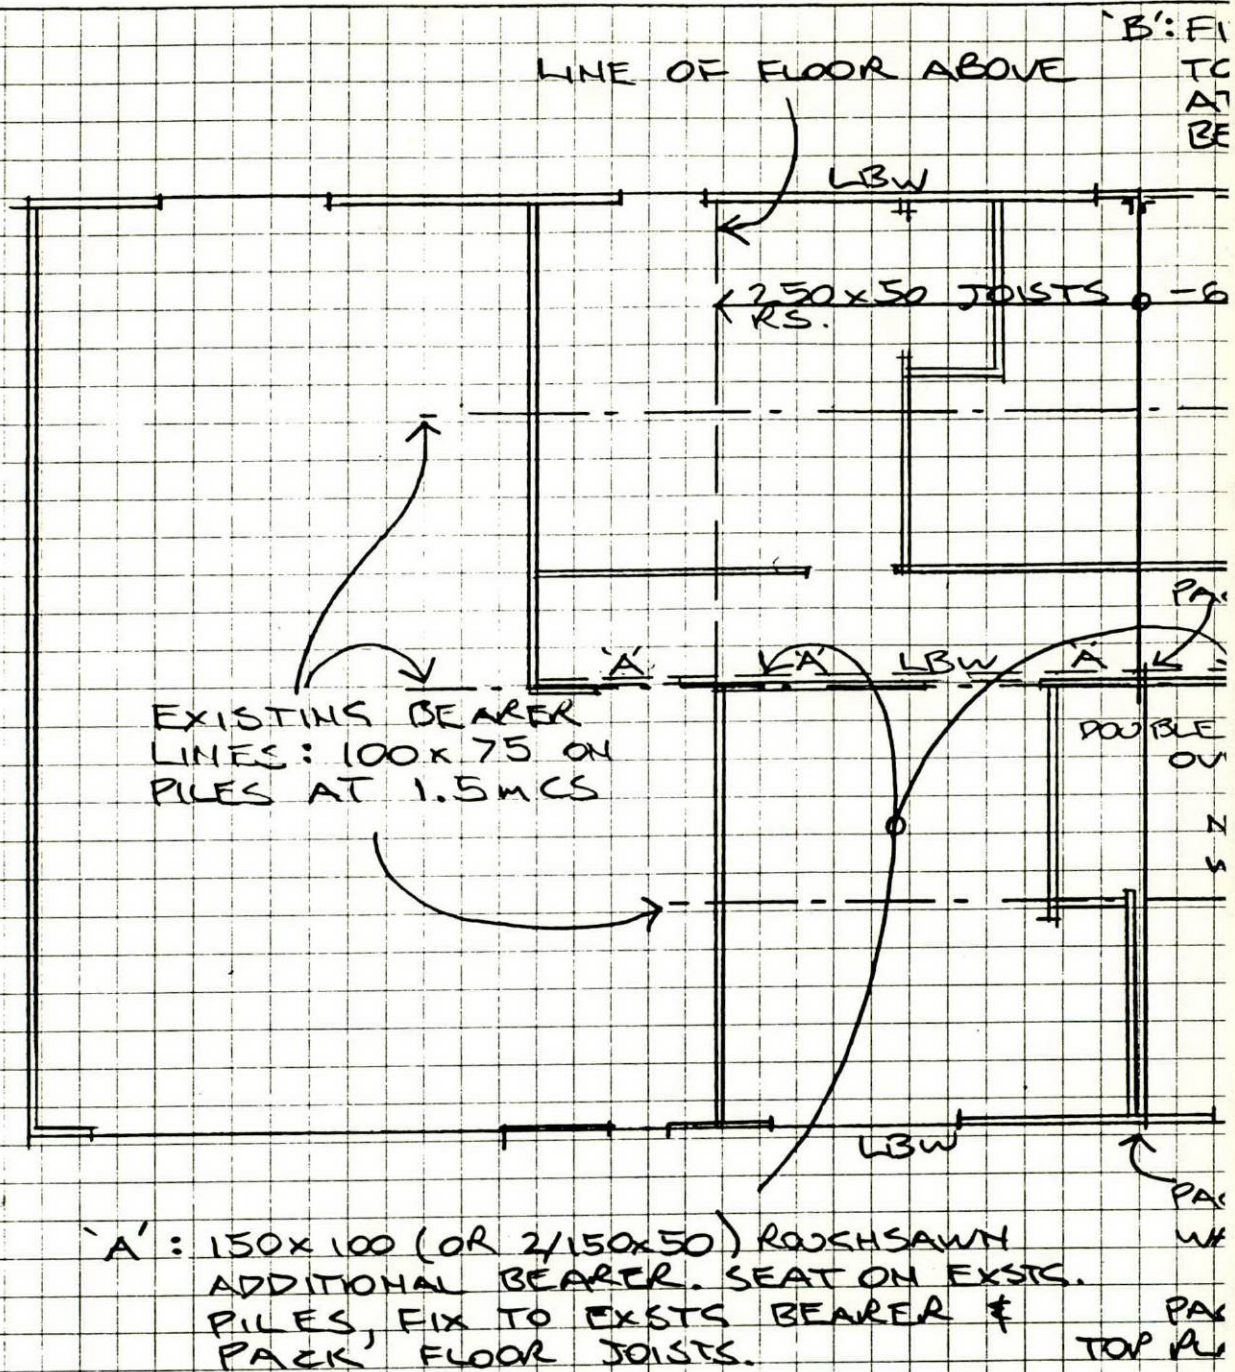 'B': FI
LINE OF FLOOR ABOVE
TO
AT
BE
LBW
250x50 JOISTS
RS.
-6
PAC
'A'
'A'
LBW
'A'
EXISTING BEARER
LINES: 100x75 ON
PILES AT 1.5m CS
DOUBLE
OV
N
W
LBW
PAC
WH
'A': 150x100 (OR 2/150x50) ROUGHSAWN
ADDITIONAL BEARER. SEAT ON EXSTG.
PILES, FIX TO EXSTG BEARER &
PACK FLOOR JOISTS.
PAC
TOP PL